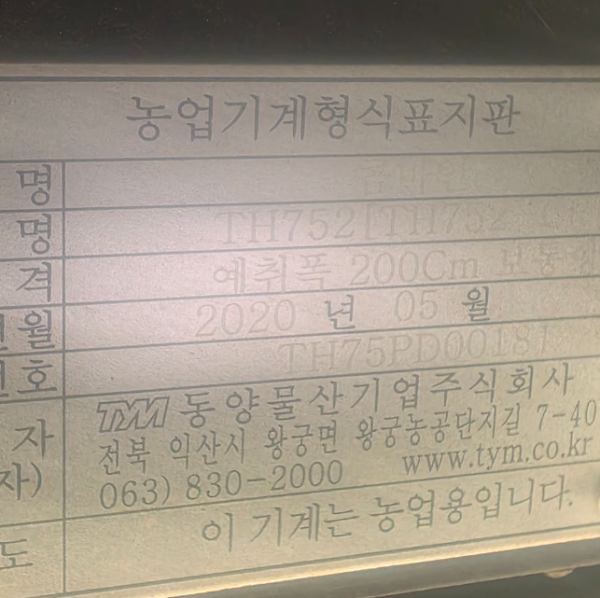 농업기계형식표지판
명 콤바인
명 TH752[TH752
격 예취폭 200Cm 보통형
년월 2020 년 05 월
번호 TH75PD00181
자 TYM 동양물산기업주식회사
전북 익산시 왕궁면 왕궁농공단지길 7-40
자) 063) 830-2000 www.tym.co.kr
도 이 기계는 농업용입니다.